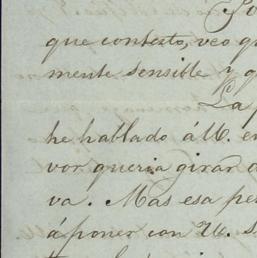 que contexto, veo q
mente sensible y q
La p
he hallado á U. en
vor queria girar
va. Mas esa pe
á poner con U. S